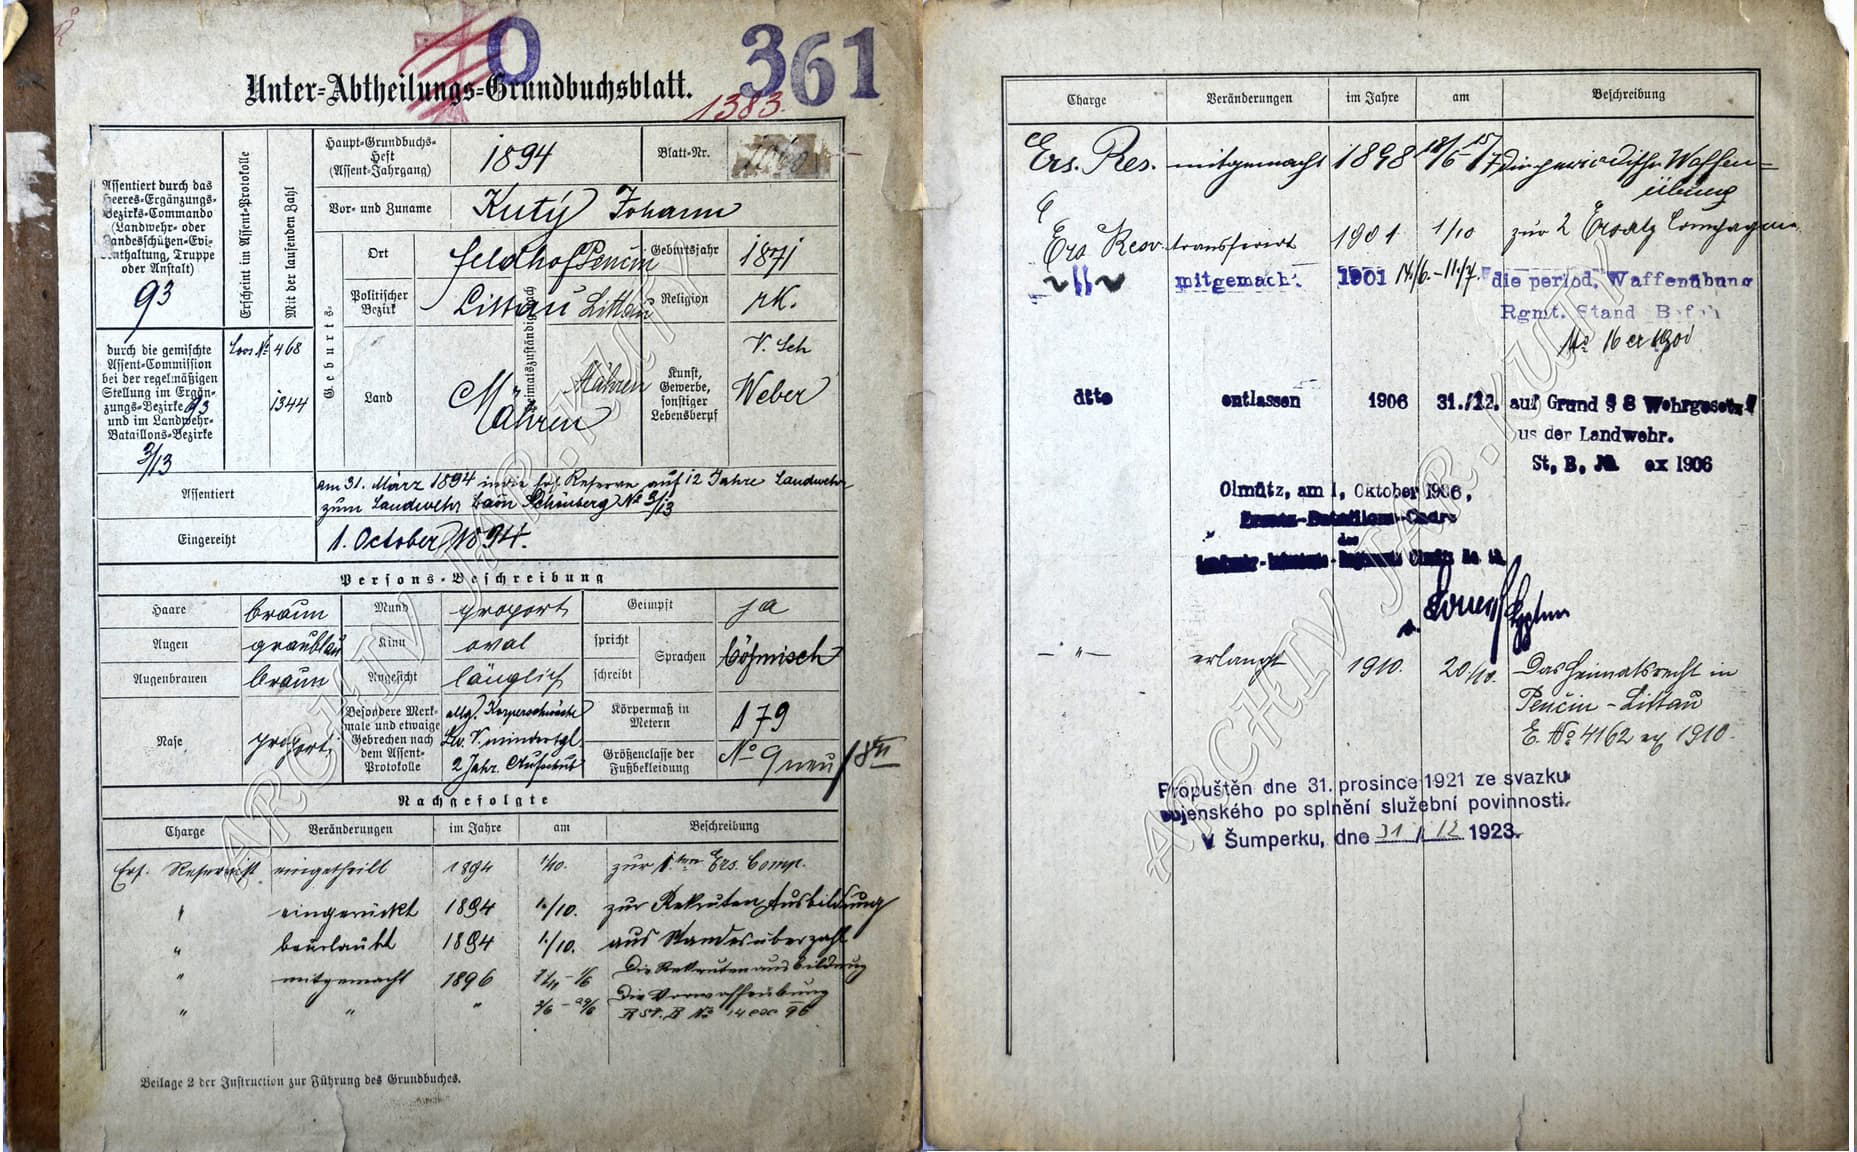 0
361
Unter-Abtheilungs-Grundbuchsblatt.
1383.
Assentiert durch das
Heeres-Ergänzungs-
Bezirks-Commando
(Landwehr- oder
Landesschützen-Evi-
enthaltung, Truppe
oder Anstalt)
93
Erscheint im Assent-Protokolle
Mit der laufenden Zahl
durch die gemischte
Assent-Commission
bei der regelmäßigen
Stellung im Ergän-
zungs-Bezirke 93
und im Landwehr-
Bataillons-Bezirke
3/13
Loos No 468
1344
Haupt-Grundbuchs-
Heft
(Assent-Jahrgang)
1894
Blatt-Nr.
Vor- und Zuname
Kutý Johann
Geburts-
Ort
Feldhof Penčin
Geburtsjahr
1871
Politischer
Bezirk
Littau Littau
Religion
rk.
Land
Mähren
Heimatszuständig nach
Mähren
Kunst,
Gewerbe,
sonstiger
Lebensberuf
V. Sch
Weber
Assentiert
am 31. März 1894 in die Ers. Reserve auf 12 Jahre Landwehr
zum Landwehr Baon Schönberg No 3/13
Eingereiht
1. October 1894.
Persons-Beschreibung
Haare braun
Mund proport
Geimpft ja
Augen graublau
Kinn oval
spricht
Sprachen böhmisch
Augenbrauen braun
Angesicht länglich
schreibt
Nase proport.
Besondere Merk-
male und etwaige
Gebrechen nach
dem Assent-
Protokolle
allg. Körperschwäche
V. mindertgl.
2 Jahr. Aufschub
Körpermaß in
Metern
179
Größenclasse der
Fußbekleidung
No 9 neu / 8 II
Nachgefolgte
Charge Veränderungen im Jahre am Beschreibung
Ers. Reservist eingetheilt 1894 1/10. zur 1. ten Ers. Comp.
" eingerückt 1894 1/10. zur Rekruten Ausbildung
" beurlaubt 1894 1/10. aus Standesüberzahl
" mitgemacht 1896 Die Rekrutenausbildung
" " " Die Vorwaffenübung
Beilage 2 der Instruction zur Führung des Grundbuches.
Charge Veränderungen im Jahre am Beschreibung
Ers. Res. mitgemacht 1898 die period. Waffen-
übung
Ers Resv. transferirt 1901 1/10 zur 2 Ersatz Compagnie
~ " ~ mitgemacht 1901 14/6.-11./7. die period. Waffenübung
Rgmt. Stand Befeh
No 16 ex 1901
dtto entlassen 1906 31./12. auf Grund § 8 Wehrgesetz
us der Landwehr.
St, B, No ex 1906
Olmütz, am 1, Oktober 1906,
Ersatz-Bataillons-Cadre
des
Landwehr-Infanterie-Regiments Olmütz No 13
— " — erlangt 1910. 20/10. Das Heimatsrecht in
Penčin - Littau
E. No 4162 ex 1910.
Propuštěn dne 31. prosince 1921 ze svazku
ojenského po splnění služební povinnosti.
V Šumperku, dne 31 / 12 1923.
ARCHIV JAR. KUTÝ
ARCHIV JAR. KUTÝ